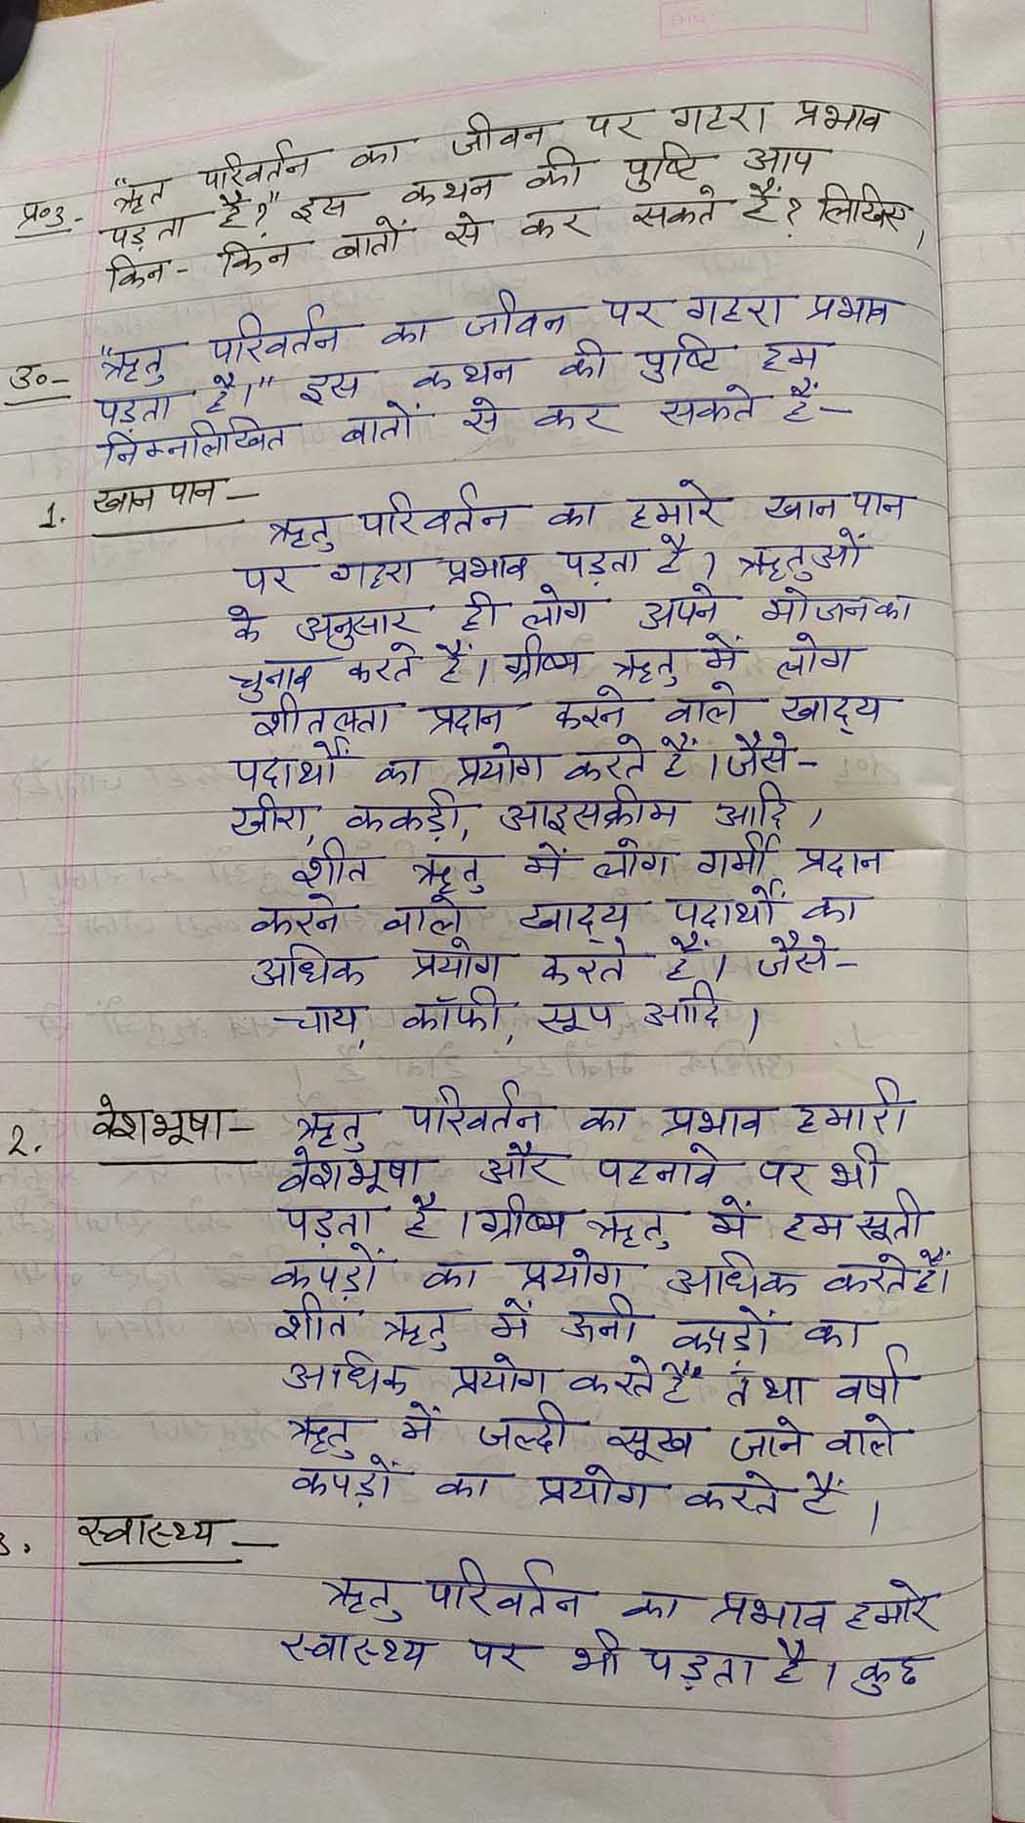 प्र०3- "ऋतु परिवर्तन का जीवन पर गहरा प्रभाव
पड़ता है?" इस कथन की पुष्टि आप
किन-किन बातों से कर सकते हैं? लिखिए।
उ०- "ऋतु परिवर्तन का जीवन पर गहरा प्रभाव
पड़ता है।" इस कथन की पुष्टि हम
निम्नलिखित बातों से कर सकते हैं-
1. खान पान-
ऋतु परिवर्तन का हमारे खान पान
पर गहरा प्रभाव पड़ता है। ऋतुओं
के अनुसार ही लोग अपने भोजन का
चुनाव करते हैं। ग्रीष्म ऋतु में लोग
शीतलता प्रदान करने वाले खाद्य
पदार्थों का प्रयोग करते हैं। जैसे-
खीरा, ककड़ी, आइसक्रीम आदि।
शीत ऋतु में लोग गर्मी प्रदान
करने वाले खाद्य पदार्थों का
अधिक प्रयोग करते हैं। जैसे-
चाय, कॉफी, सूप आदि।
2. वेशभूषा- ऋतु परिवर्तन का प्रभाव हमारी
वेशभूषा और पहनावे पर भी
पड़ता है। ग्रीष्म ऋतु में हम सूती
कपड़ों का प्रयोग अधिक करते हैं।
शीत ऋतु में ऊनी कपड़ों का
अधिक प्रयोग करते हैं तथा वर्षा
ऋतु में जल्दी सूख जाने वाले
कपड़ों का प्रयोग करते हैं।
3. स्वास्थ्य-
ऋतु परिवर्तन का प्रभाव हमारे
स्वास्थ्य पर भी पड़ता है। कुछ